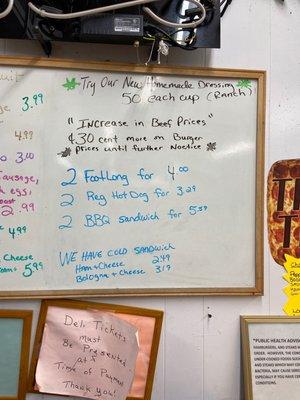 Try Our New Homemade Dressing
50 cent each cup (Ranch)
"Increase in Beef Prices"
¢30 cent more on Burger
prices until further Noctice
2 FootLong for 4.00
2 Reg Hot Dog for 3.29
2 BBQ sandwich for 5.59
WE HAVE COLD SANDWICH
Ham + Cheese 2.49
Bologna + Cheese 3.19
3.99
4.99
3.00
Sausage,
egg,
2.99
4.99
Cheese
5.99
Deli Tickets
must
Be Presented
at
Time of Payment
Thank you!
"PUBLIC HEALTH ADVISORY
HAMBURGERS, AND STEAKS
ORDER. HOWEVER, THE